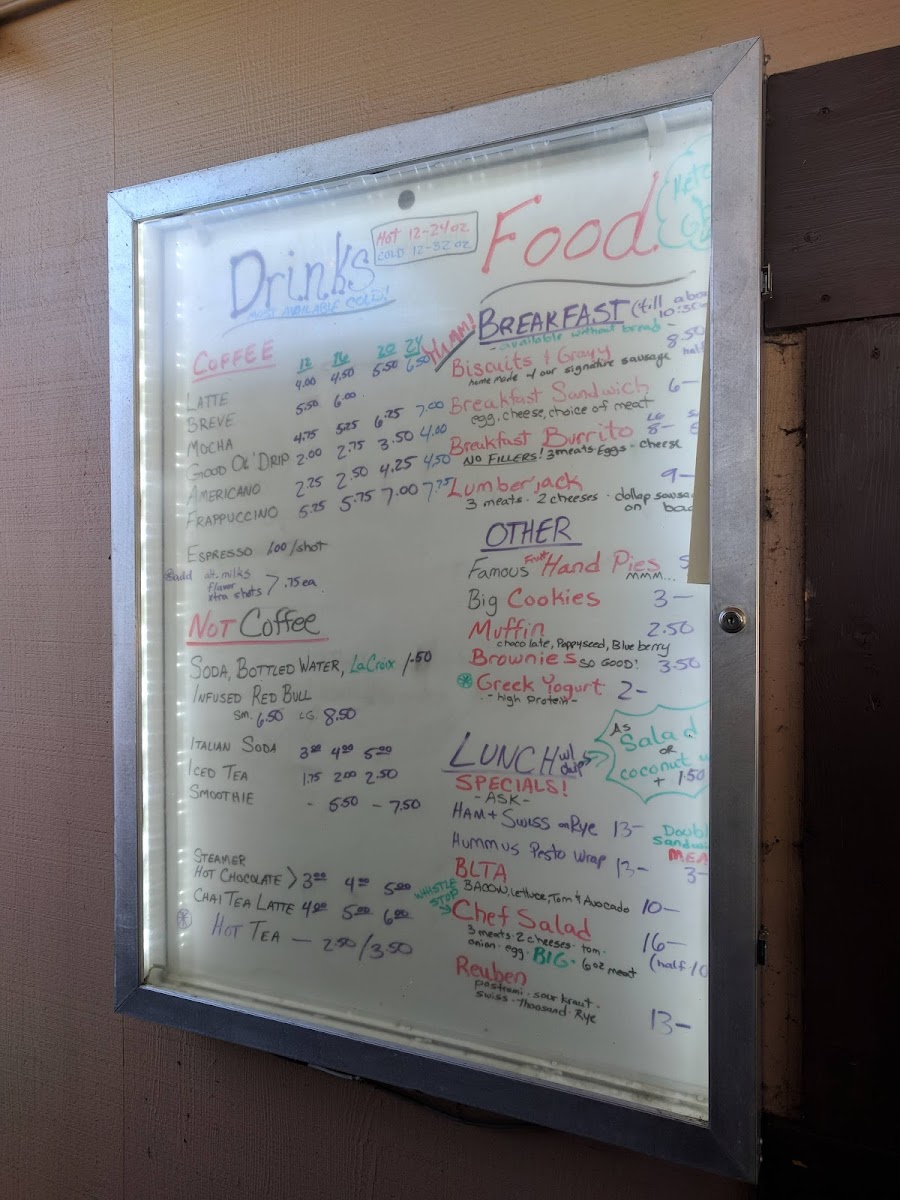 Drinks
HOT 12-24oz
COLD 12-32oz
MOST AVAILABLE COLD!
COFFEE
12 16 20 24
LATTE 4.00 4.50 5.50 6.50
BREVE 5.50 6.00
MOCHA 4.75 5.25 6.25 7.00
GOOD OL' DRIP 2.00 2.75 3.50 4.00
AMERICANO 2.25 2.50 4.25 4.50
FRAPPUCCINO 5.25 5.75 7.00 7.75
ESPRESSO 1.00/shot
add alt. milks
flavor
xtra shots > .75 ea
NOT Coffee
SODA, BOTTLED WATER, LaCroix 1.50
INFUSED RED BULL
SM. 6.50 LG. 8.50
ITALIAN SODA 3.00 4.00 5.00
ICED TEA 1.75 2.00 2.50
SMOOTHIE - 5.50 - 7.50
STEAMER
HOT CHOCOLATE > 3.00 4.00 5.00
CHAI TEA LATTE 4.00 5.00 6.00
HOT TEA — 2.50/3.50
Food
YUMM!
BREAKFAST (till
10:30
- available without bread -
Biscuits & Gravy 8.50
home made & our signature sausage
Breakfast Sandwich 6-
egg, cheese, choice of meat
Breakfast Burrito LG 8-
NO FILLERS! 3 meats Eggs - cheese
Lumberjack 9-
3 meats - 2 cheeses - dollop
on
OTHER
Famous Fruit Hand Pies
MMM...
Big Cookies 3-
Muffin 2.50
chocolate, Poppyseed, Blueberry
Brownies SO GOOD! 3.50
Greek Yogurt 2-
- high protein -
LUNCH w/ chips
AS
Salad
OR
coconut
+ 1.50
SPECIALS!
- ASK -
HAM + SWISS on Rye 13-
HUMMUS Pesto Wrap 13-
3-
BLTA
BACON, Lettuce, Tom & Avocado 10-
WHISTLE
STOP
Chef Salad 16-
3 meats - 2 cheeses - tom -
onion - egg - BIG - 6 oz meat
(half
Reuben
pastrami - sour kraut -
swiss - thousand - Rye 13-